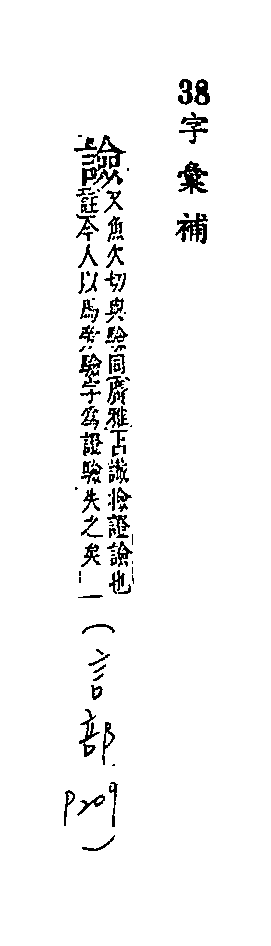 38字彙補
譣
又魚欠切與驗同廣雅占讖 證譣也
註今人以馬 驗字為證驗失之矣
(言部 P209)